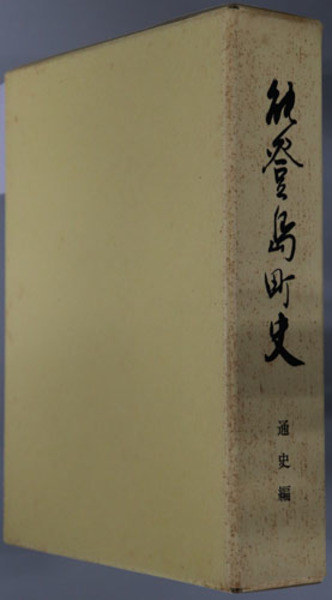 能登島町史
通史編